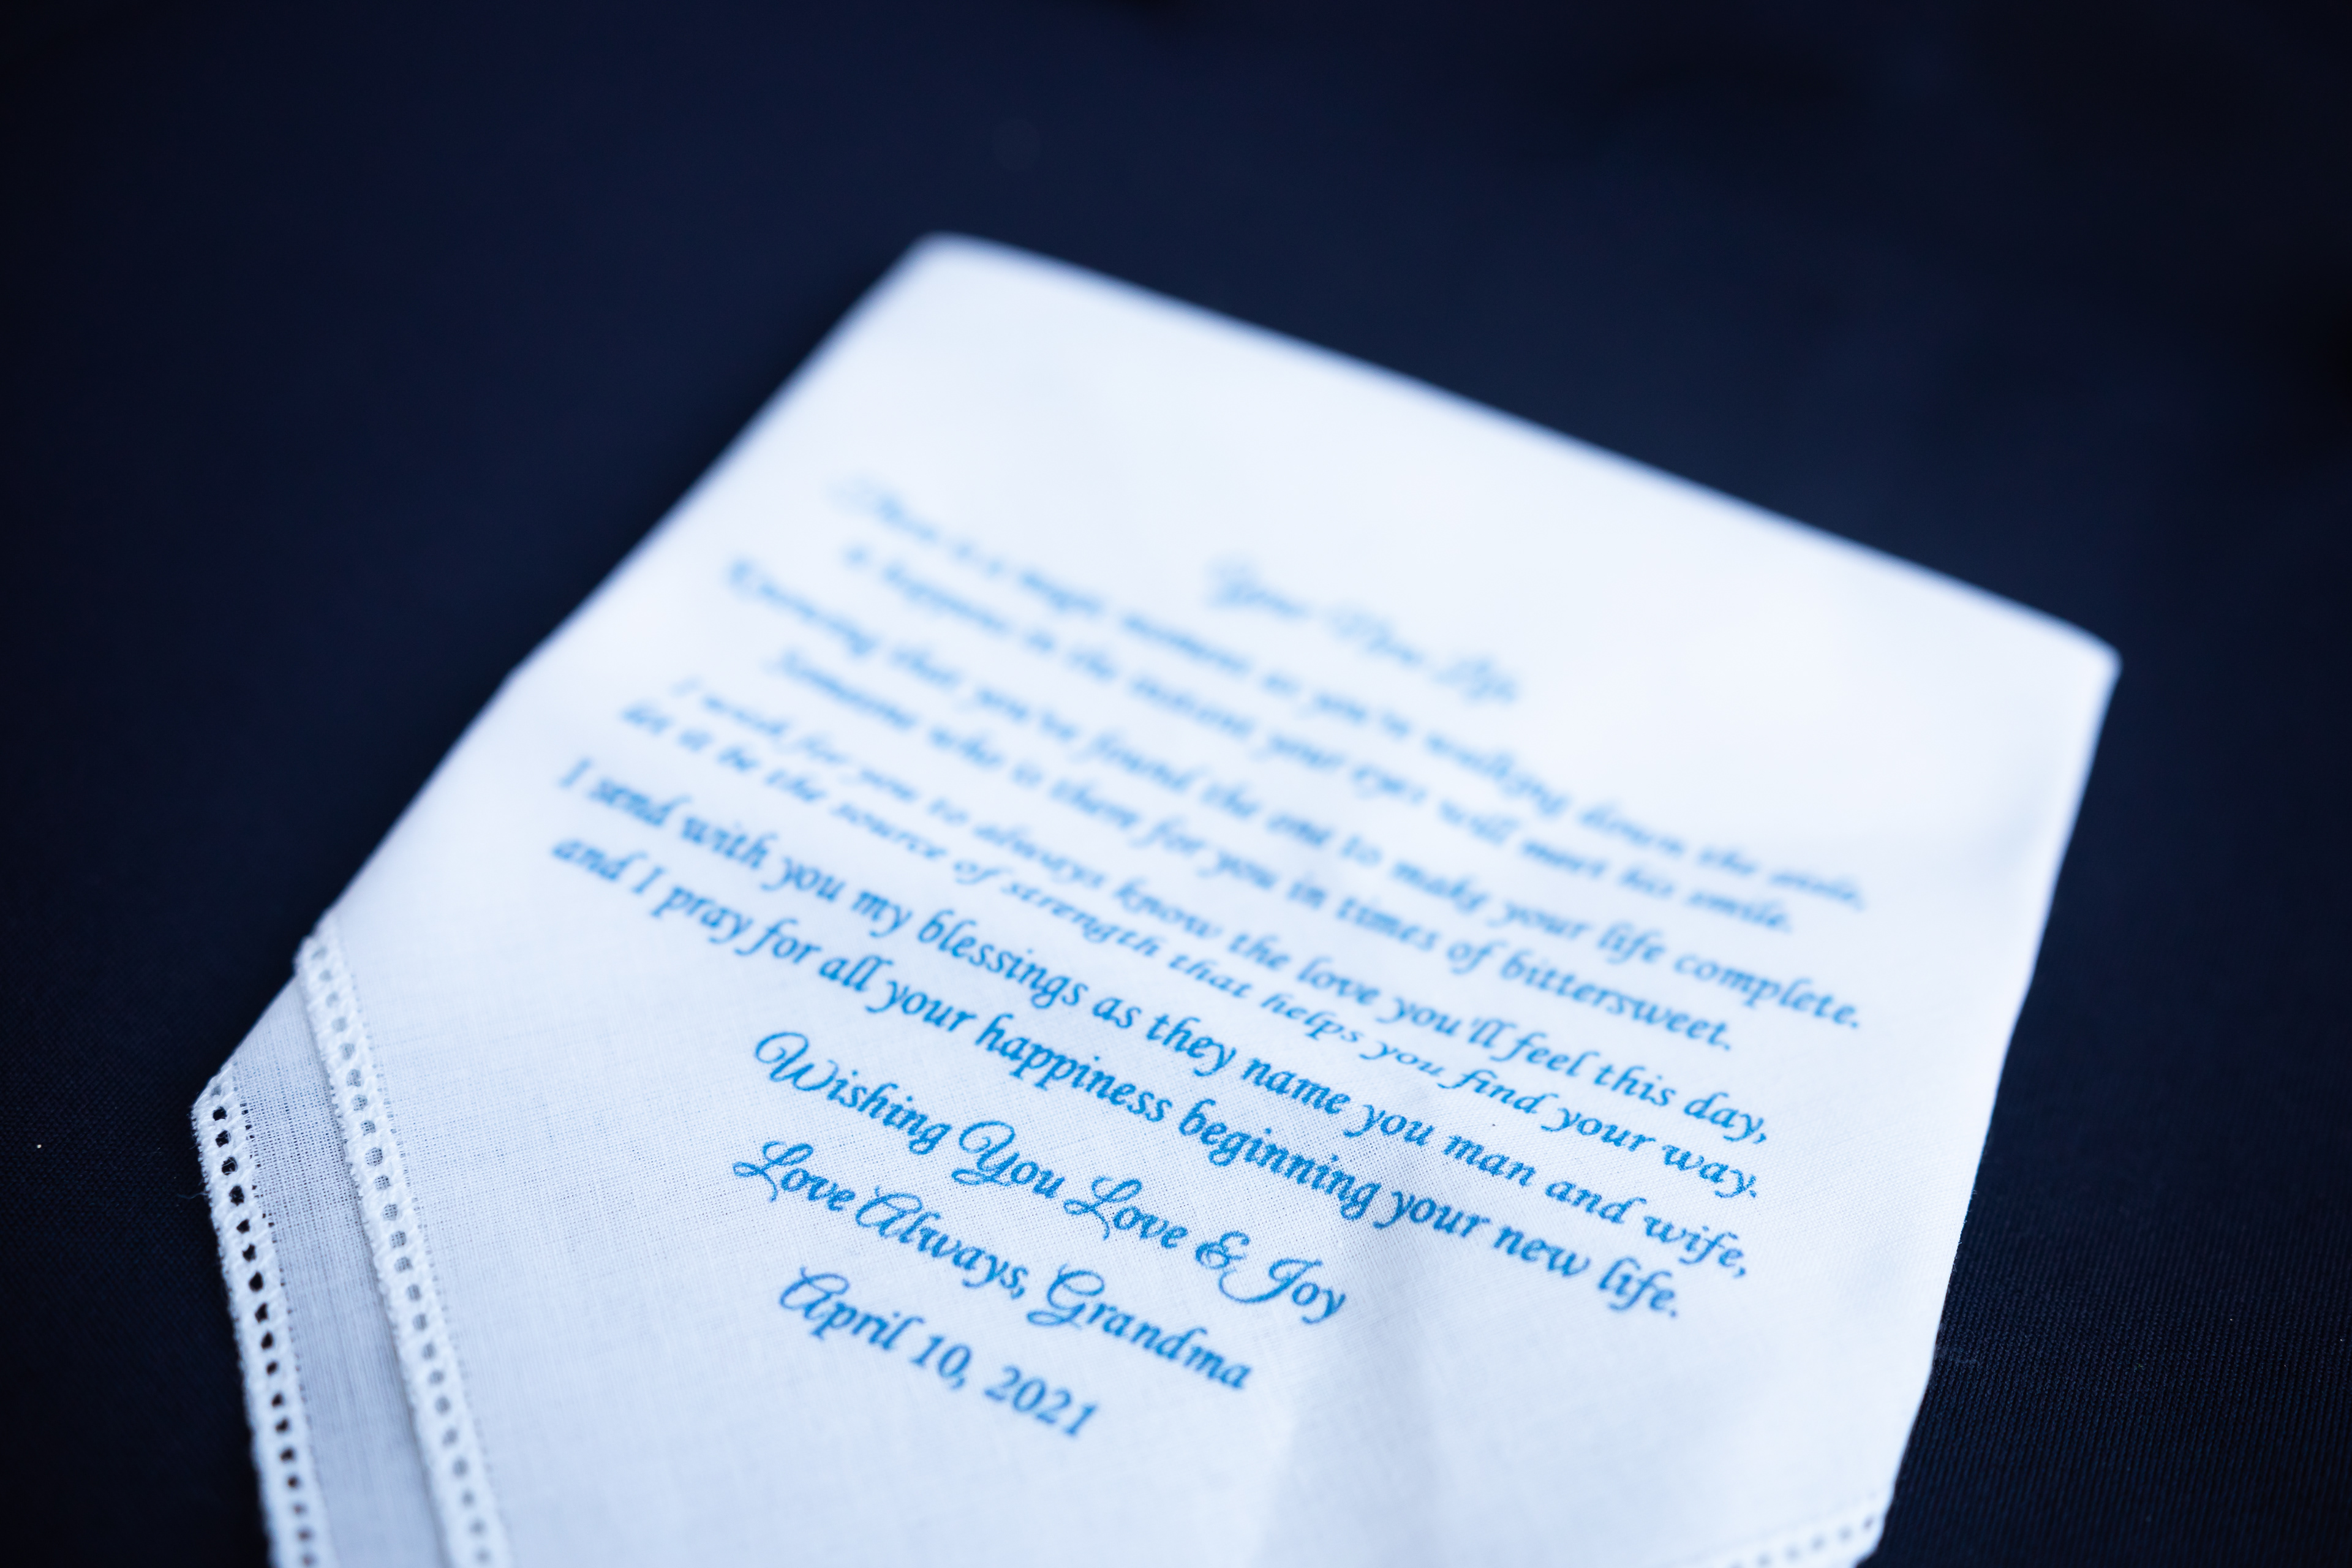 Your New Life
There is a magic moment as you're walking down the aisle,
it happens in the instant your eyes will meet his smile.
Knowing that you've found the one to make your life complete.
Someone who is there for you in times of bittersweet.
I wish for you to always know the love you'll feel this day,
let it be the source of strength that helps you find your way.
I send with you my blessings as they name you man and wife,
and I pray for all your happiness beginning your new life.
Wishing You Love & Joy
Love Always, Grandma
April 10, 2021